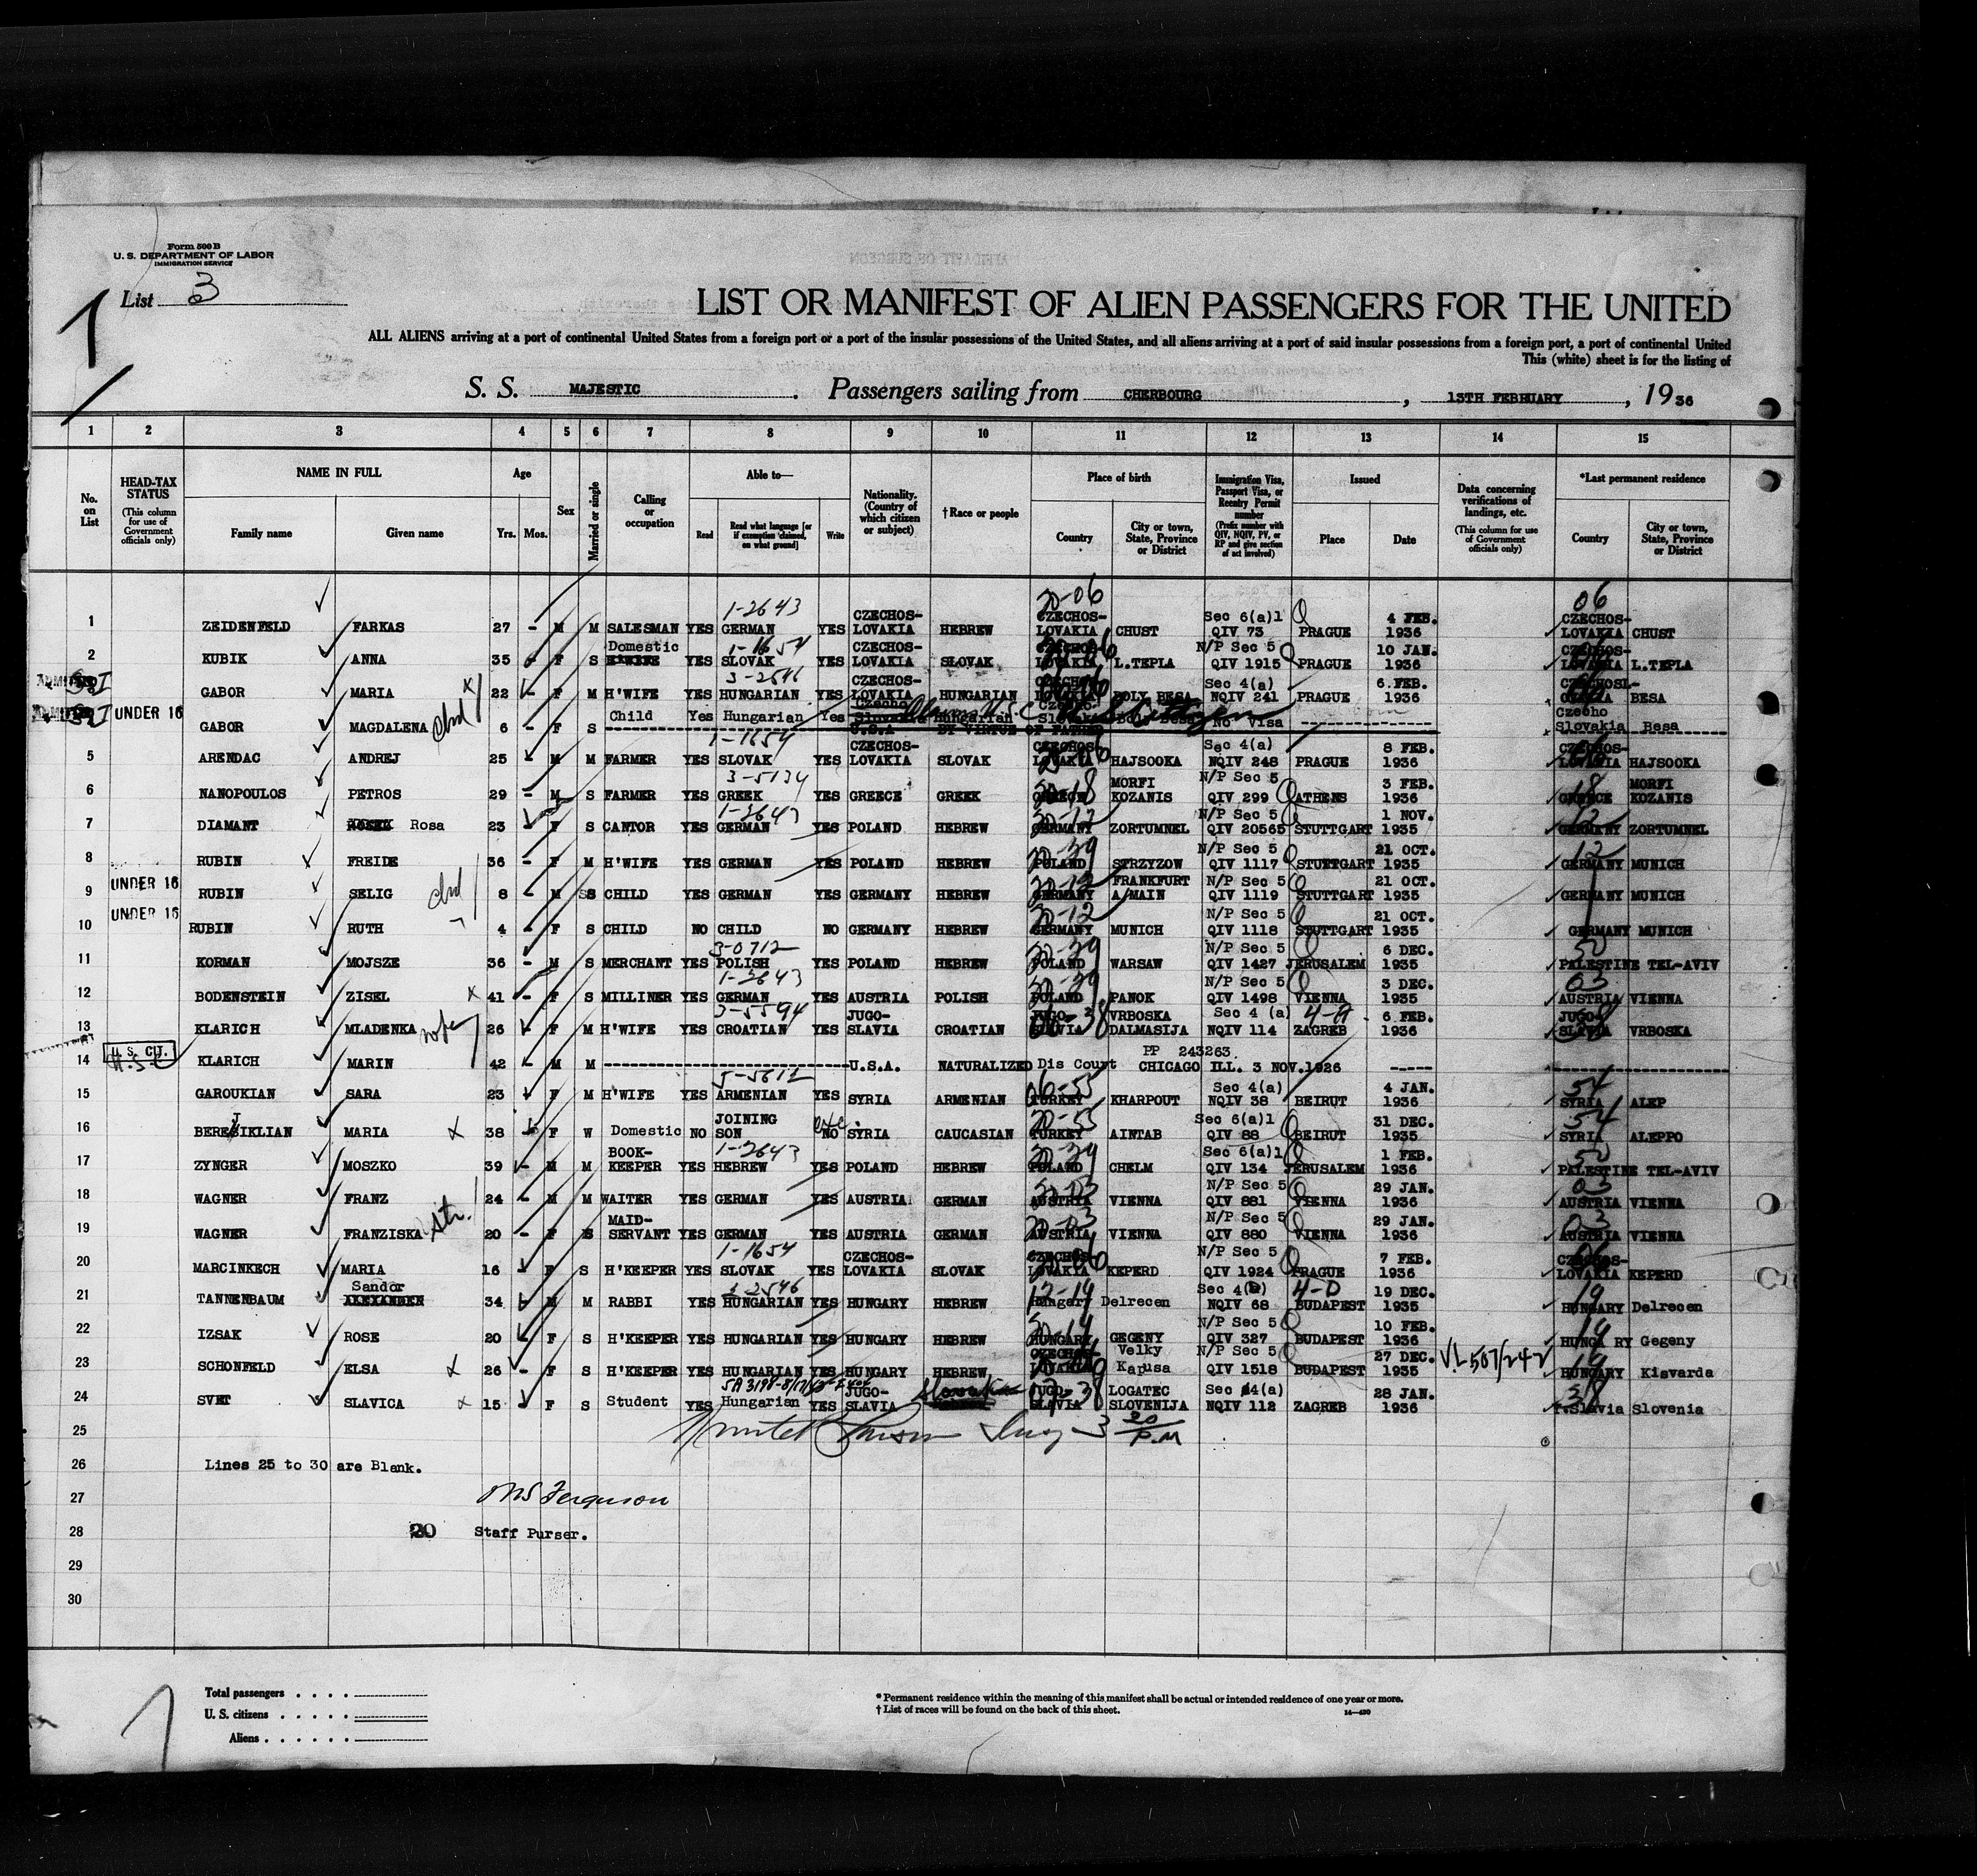 Form 500 B
U. S. DEPARTMENT OF LABOR
IMMIGRATION SERVICE
List 3
LIST OR MANIFEST OF ALIEN PASSENGERS FOR THE UNITED
ALL ALIENS arriving at a port of continental United States from a foreign port or a port of the insular possessions of the United States, and all aliens arriving at a port of said insular possessions from a foreign port, a port of continental United
This (white) sheet is for the listing of
S. S. MAJESTIC. Passengers sailing from CHERBOURG, 13TH FEBRUARY, 1936
1 2 3 4 5 6 7 8 9 10 11 12 13 14 15
No. on List
HEAD-TAX STATUS (This column for use of Government officials only)
NAME IN FULL Family name Given name
Age Yrs. Mos.
Sex
Married or single
Calling or occupation
Able to— Read Read what language [or if exemption claimed, on what ground] Write
Nationality. (Country of which citizen or subject)
†Race or people
Place of birth Country City or town, State, Province or District
Immigration Visa, Passport Visa, or Reentry Permit number (Prefix number with QIV, NQIV, PV, or RP and give section of act involved)
Issued Place Date
Data concerning verifications of landings, etc. (This column for use of Government officials only)
*Last permanent residence Country City or town, State, Province or District
1 ZEIDENFELD FARKAS 27 - M M SALESMAN YES 1-2643 GERMAN YES CZECHOS-LOVAKIA HEBREW 20-06 CZECHOS-LOVAKIA CHUST Sec 6(a)1 QIV 73 PRAGUE 4 FEB. 1936 06 CZECHOS-LOVAKIA CHUST
2 KUBIK ANNA 35 - F S Domestic H'WIFE YES 1-1654 SLOVAK YES CZECHOS-LOVAKIA SLOVAK CZECHOS-LOVAKIA L.TEPLA N/P Sec 5 QIV 1915 PRAGUE 10 JAN. 1936 CZECHOS-LOVAKIA L.TEPLA
ADMITTED SI GABOR MARIA 22 - F M H'WIFE YES 3-2546 HUNGARIAN YES CZECHOS-LOVAKIA HUNGARIAN LOVAKIA BOLY BESA Sec 4(a) NQIV 241 PRAGUE 6.FEB. 1936 CZECHOSL-OVAKIA BESA
ADMITTED SI UNDER 16 GABOR MAGDALENA 6 - F S Child Yes Hungarian Yes Czecho Slovakia U.S.A Hungarian BY VIRTUE OF FATHER Czecho Slovakia Boly Besa Claims U.S. Citizen No Visa Czecho Slovakia Besa
5 ARENDAC ANDREJ 25 - M M FARMER YES 1-1654 SLOVAK YES CZECHOS-LOVAKIA SLOVAK CZECHOS-LOVAKIA HAJSOOKA Sec 4(a) NQIV 248 PRAGUE 8 FEB. 1936 CZECHOS-LOVAKIA HAJSOOKA
6 NANOPOULOS PETROS 29 - M S FARMER YES 3-5134 GREEK YES GREECE GREEK 20-18 GREECE MORFI KOZANIS N/P Sec 5 QIV 299 ATHENS 3 FEB. 1936 18 GREECE MORFI KOZANIS
7 DIAMANT Rosa 23 - F S CANTOR YES 1-2643 GERMAN YES POLAND HEBREW 20-12 GERMANY ZORTUMNEL N/P Sec 5 QIV 20565 STUTTGART 1 NOV. 1935 12 GERMANY ZORTUMNEL
8 RUBIN FREIDE 36 - F M H'WIFE YES GERMAN YES POLAND HEBREW 20-29 POLAND STRZYZOW N/P Sec 5 QIV 1117 STUTTGART 21 OCT. 1935 12 GERMANY MUNICH
9 UNDER 16 RUBIN SELIG 8 - M S CHILD YES GERMAN YES GERMANY HEBREW 20-12 GERMANY FRANKFURT A/MAIN N/P Sec 5 QIV 1119 STUTTGART 21 OCT. 1935 GERMANY MUNICH
10 UNDER 16 RUBIN RUTH 4 - F S CHILD NO CHILD NO GERMANY HEBREW 20-12 GERMANY MUNICH N/P Sec 5 QIV 1118 STUTTGART 21 OCT. 1935 GERMANY MUNICH
11 KORMAN MOJSZE 36 - M S MERCHANT YES 3-0712 POLISH YES POLAND HEBREW 20-29 POLAND WARSAW N/P Sec 5 QIV 1427 JERUSALEM 6 DEC. 1935 50 PALESTINE TEL-AVIV
12 BODENSTEIN ZISEL x 41 - F S MILLINER YES 1-2643 GERMAN YES AUSTRIA POLISH 20-29 POLAND PANOK N/P Sec 5 QIV 1498 VIENNA 3 DEC. 1935 03 AUSTRIA VIENNA
13 KLARICH MLADENKA 26 - F M H'WIFE YES 3-5594 CROATIAN YES JUGO-SLAVIA CROATIAN JUGO-SLAVIA VRBOSKA DALMASIJA Sec 4 (a) NQIV 114 4-A ZAGREB 6 FEB. 1936 JUGO-SLAVIA VRBOSKA
14 U. S. CIT. KLARICH MARIN 42 - M M U.S.A. NATURALIZED Dis Court CHICAGO ILL. 3 NOV.1926 PP 243263
15 GAROUKIAN SARA 23 - F M H'WIFE YES 5-5612 ARMENIAN YES SYRIA ARMENIAN 06-55 TURKEY KHARPOUT Sec 4(a) NQIV 38 BEIRUT 4 JAN. 1936 54 SYRIA ALEP
16 BEREJIKLIAN MARIA x 38 - F W Domestic NO JOINING SON NO SYRIA CAUCASIAN 20-55 TURKEY AINTAB Sec 6(a)1 QIV 88 BEIRUT 31 DEC. 1935 54 SYRIA ALEPPO
17 ZYNGER MOSZKO 39 - M M BOOK-KEEPER YES 1-2643 HEBREW YES POLAND HEBREW 20-29 POLAND CHELM Sec 6(a)1 QIV 134 JERUSALEM 1 FEB. 1936 50 PALESTINE TEL-AVIV
18 WAGNER FRANZ 24 - M M WAITER YES GERMAN YES AUSTRIA GERMAN 20-03 AUSTRIA VIENNA N/P Sec 5 QIV 881 VIENNA 29 JAN. 1936 03 AUSTRIA VIENNA
19 WAGNER FRANZISKA 20 - F S MAID-SERVANT YES GERMAN YES AUSTRIA GERMAN 20-03 AUSTRIA VIENNA N/P Sec 5 QIV 880 VIENNA 29 JAN. 1936 03 AUSTRIA VIENNA
20 MARCINKECH MARIA 16 - F S H'KEEPER YES 1-1654 SLOVAK YES CZECHOS-LOVAKIA SLOVAK CZECHOS-LOVAKIA KEPERD N/P Sec 5 QIV 1924 PRAGUE 7 FEB. 1936 CZECHOS-LOVAKIA KEPERD
21 TANNENBAUM Sandor ALEXANDER 34 - M M RABBI YES 3-2546 HUNGARIAN YES HUNGARY HEBREW 12-19 Hungary Delrecen Sec 4(b) NQIV 68 4-D BUDAPEST 19 DEC. 1935 19 HUNGARY Delrecen
22 IZSAK ROSE 20 - F S H'KEEPER YES HUNGARIAN YES HUNGARY HEBREW HUNGARY GEGENY N/P Sec 5 QIV 327 BUDAPEST 10 FEB. 1936 19 HUNGA RY Gegeny
23 SCHONFELD ELSA x 26 - F S H'KEEPER YES HUNGARIAN YES HUNGARY HEBREW CZECHOS-LOVAKIA Velky Kapusa N/P Sec 5 QIV 1518 BUDAPEST 27 DEC. 1935 V.L 507/242 19 HUNGARY Kisvarda
24 SVET SLAVICA x 15 - F S Student YES Hungarian YES JUGO-SLAVIA Slovakian JUGO-SLAVIA LOGATEC SLOVENIJA Sec 4(a) NQIV 112 ZAGREB 28 JAN. 1936 38 Y.Slavia Slovenia
25 3 20/P.M
26 Lines 25 to 30 are Blank.
27 Ferguson
28 20 Staff Purser.
29
30
Total passengers . . . .
U. S. citizens . . . . .
Aliens . . . . . .
* Permanent residence within the meaning of this manifest shall be actual or intended residence of one year or more.
† List of races will be found on the back of this sheet.
14—420